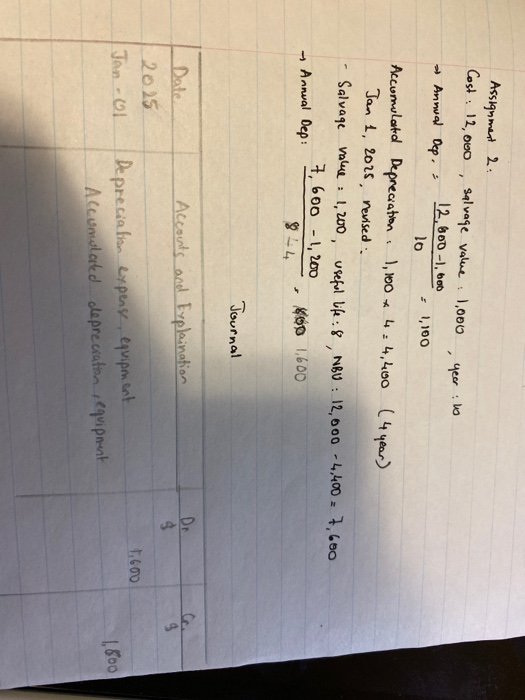 Assignment 2:
Cost: 12,000, salvage value: 1,000, year: 10
→ Annual Dep. = 12,000 - 1,000 / 10 = 1,100
Accumulated Depreciation: 1,100 x 4 = 4,400 (4 year)
Jan 1, 2025, revised:
- Salvage value: 1,200, useful life: 8, NBV: 12,000 - 4,400 = 7,600
→ Annual Dep: 7,600 - 1,200 / 8 - 4 = 1,600
Journal
Date Accounts and Explaination Dr Cr.
2025 $ $
Jan - 01 Depreciation expense, equipment 1,600
Accumulated depreciation, equipment 1,800